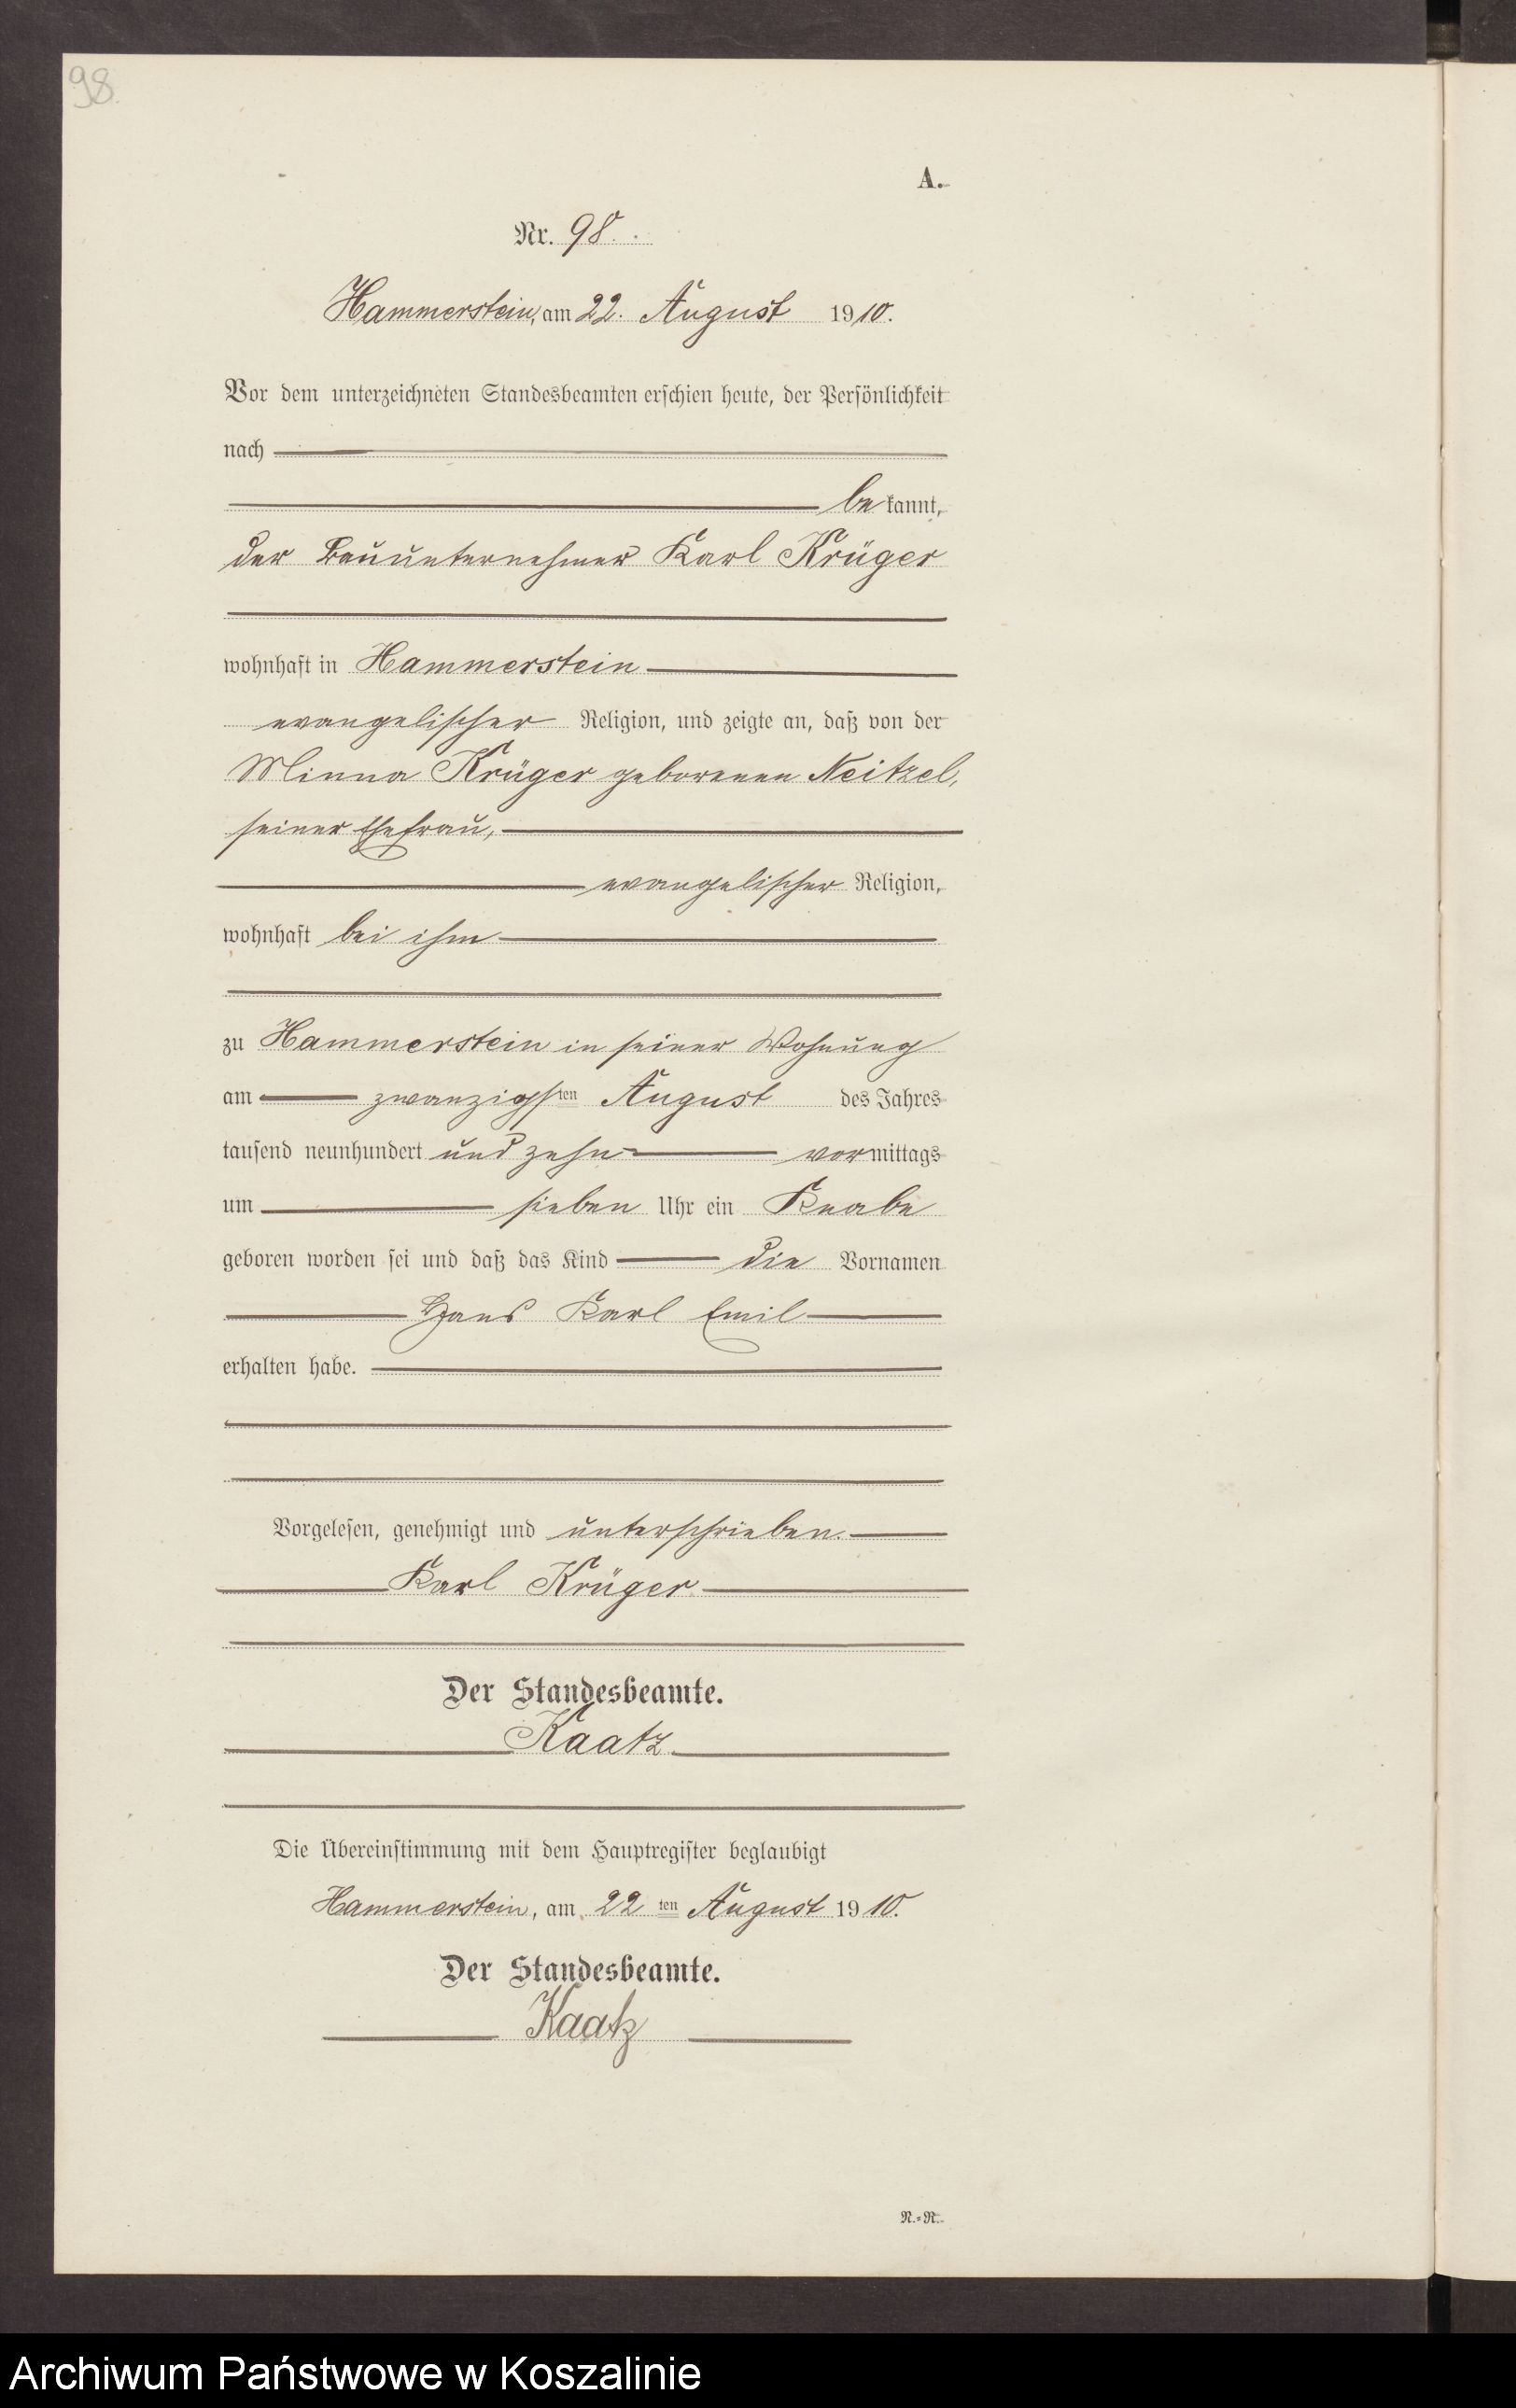 98.
A.
Nr. 98.
Hammerstein, am 22. August 1910.
Vor dem unterzeichneten Standesbeamten erschien heute, der Persönlichkeit
nach
bekannt,
der Bauunternehmer Karl Krüger
wohnhaft in Hammerstein
evangelischer Religion, und zeigte an, daß von der
Minna Krüger geborenen Neitzel,
seiner Ehefrau,
evangelischer Religion,
wohnhaft bei ihm
zu Hammerstein in seiner Wohnung
am zwanzigsten August des Jahres
tausend neunhundert und zehn vormittags
um sieben Uhr ein Knabe
geboren worden sei und daß das Kind die Vornamen
Hans Karl Emil
erhalten habe.
Vorgelesen, genehmigt und unterschrieben.
Karl Krüger
Der Standesbeamte.
Kaatz
Die Übereinstimmung mit dem Hauptregister beglaubigt
Hammerstein, am 22ten August 1910.
Der Standesbeamte.
Kaatz
N.=R.
Archiwum Państwowe w Koszalinie